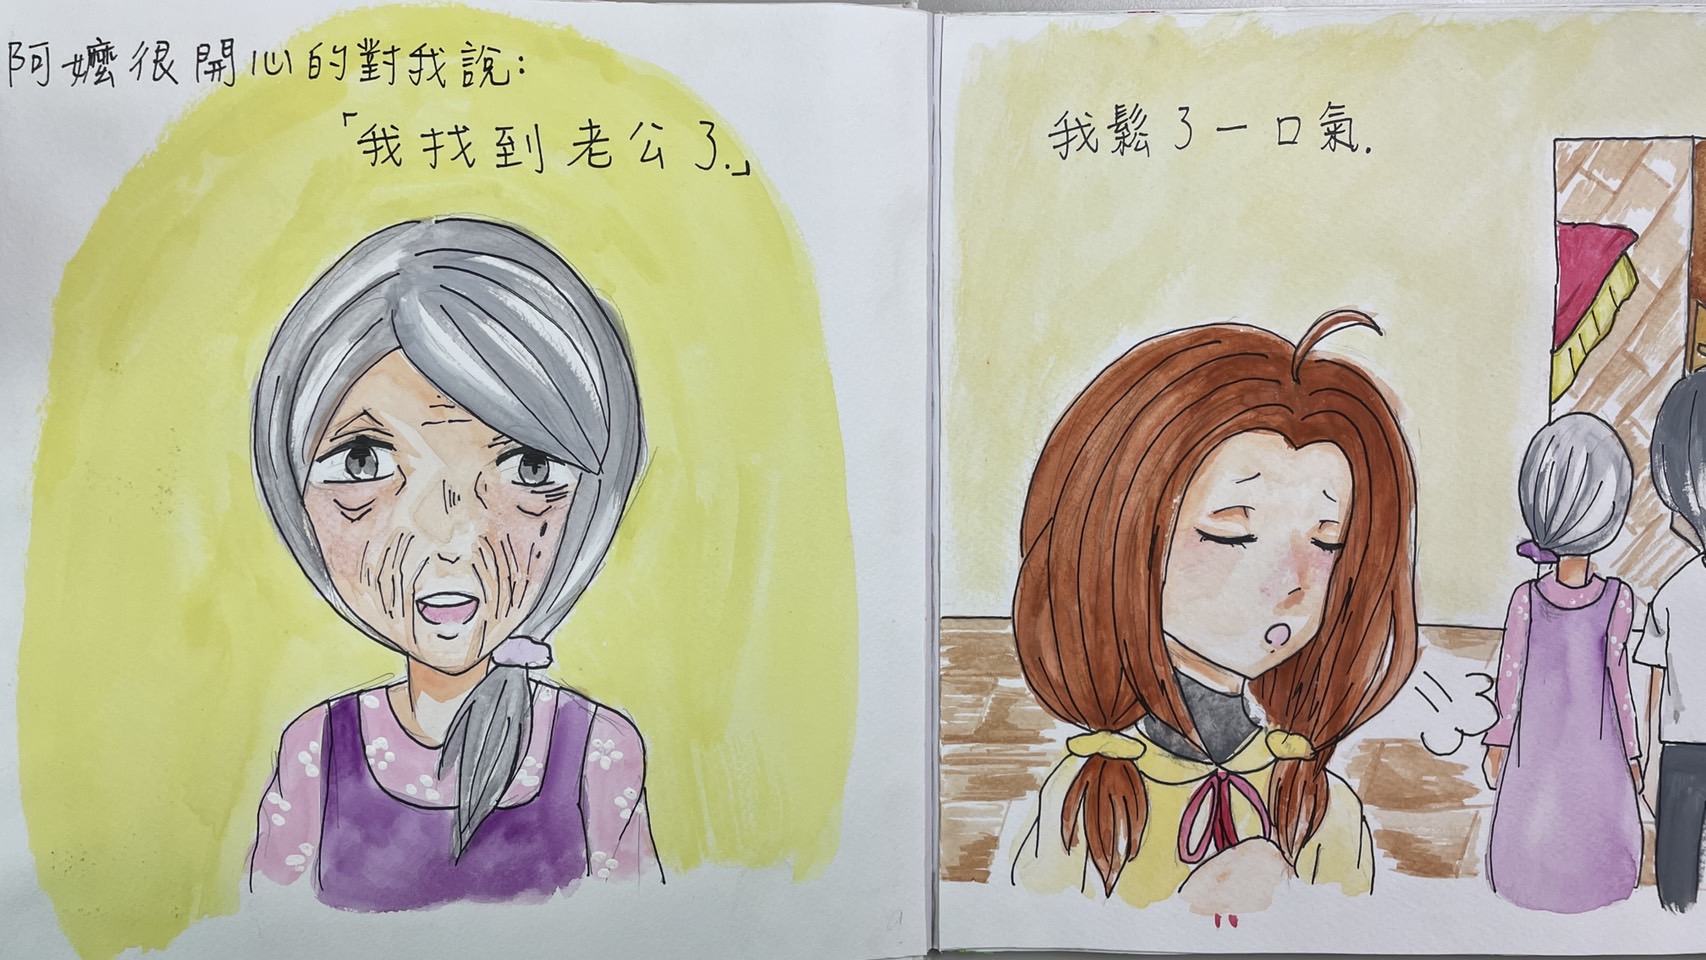 阿嬤很開心的對我說:
「我找到老公了.」
我鬆了一口氣.